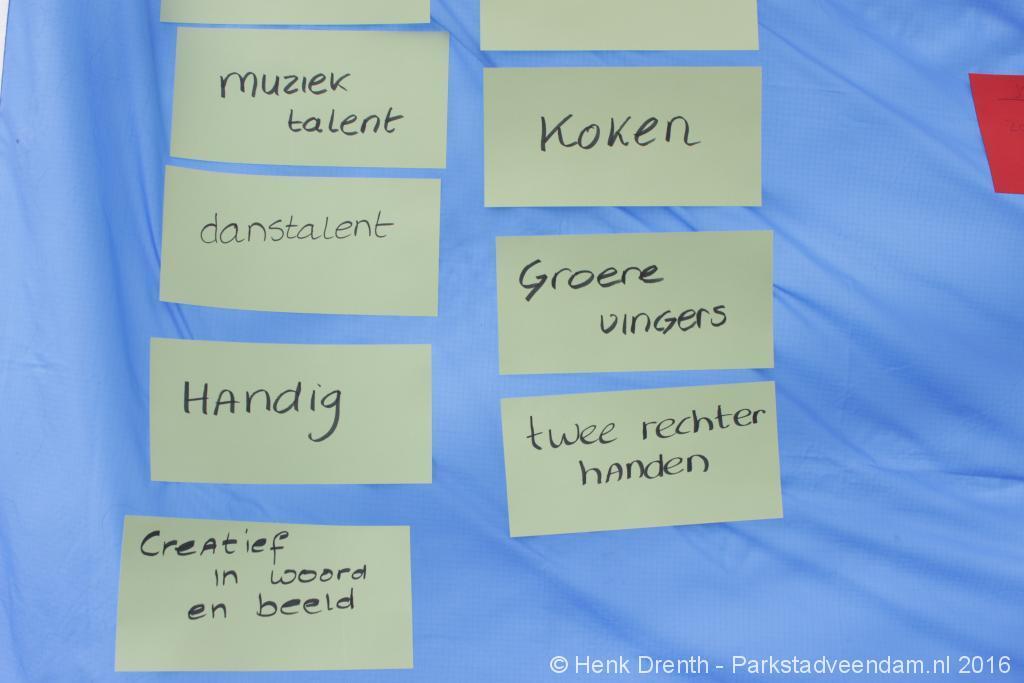 muziek
talent
danstalent
Handig
Creatief
in woord
en beeld
Koken
Groene
vingers
twee rechter
handen
© Henk Drenth - Parkstadveendam.nl 2016